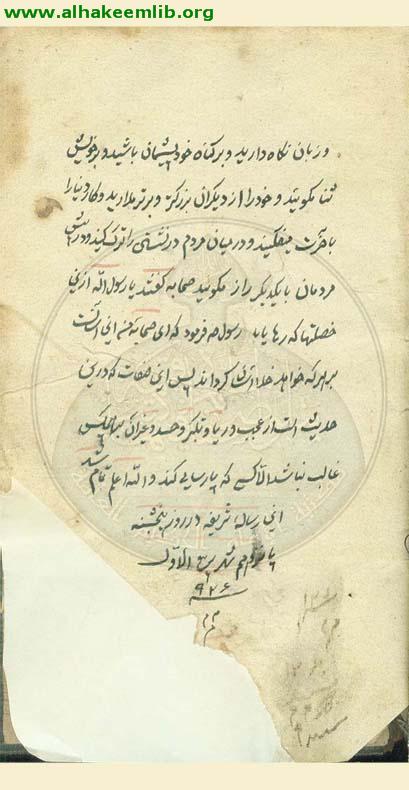 www.alhakeemlib.org
و زبان نگاه دارید و بر گناه خود پشیمان باشید و بر خویش
ثنا مگوئید و خود را از دیگران بزرگتر و برتر مدارید و کار دنیا را
با آخرت میفکنید و درمیان مردم درشتی را ترک کنید و در پیش
مردمان با یکدیگر راز مگوئید صحابه گفتند یا رسول الله ازین
خصلتها که رها یابد رسول صم فرمود که ای صحابه من این آسانست
بر هر که خواهد خدا آسان کرداند پس این صفات که درین
حدیث است از عجب و ریا و تکبر و حسد و غیر آن بر هر کس
غالب نباشد الا کسی که پارسایی کند و الله اعلم تمام شد
این رساله شریفه در روز پنجشنبه
شهر ربیع الاول
۹۲۶